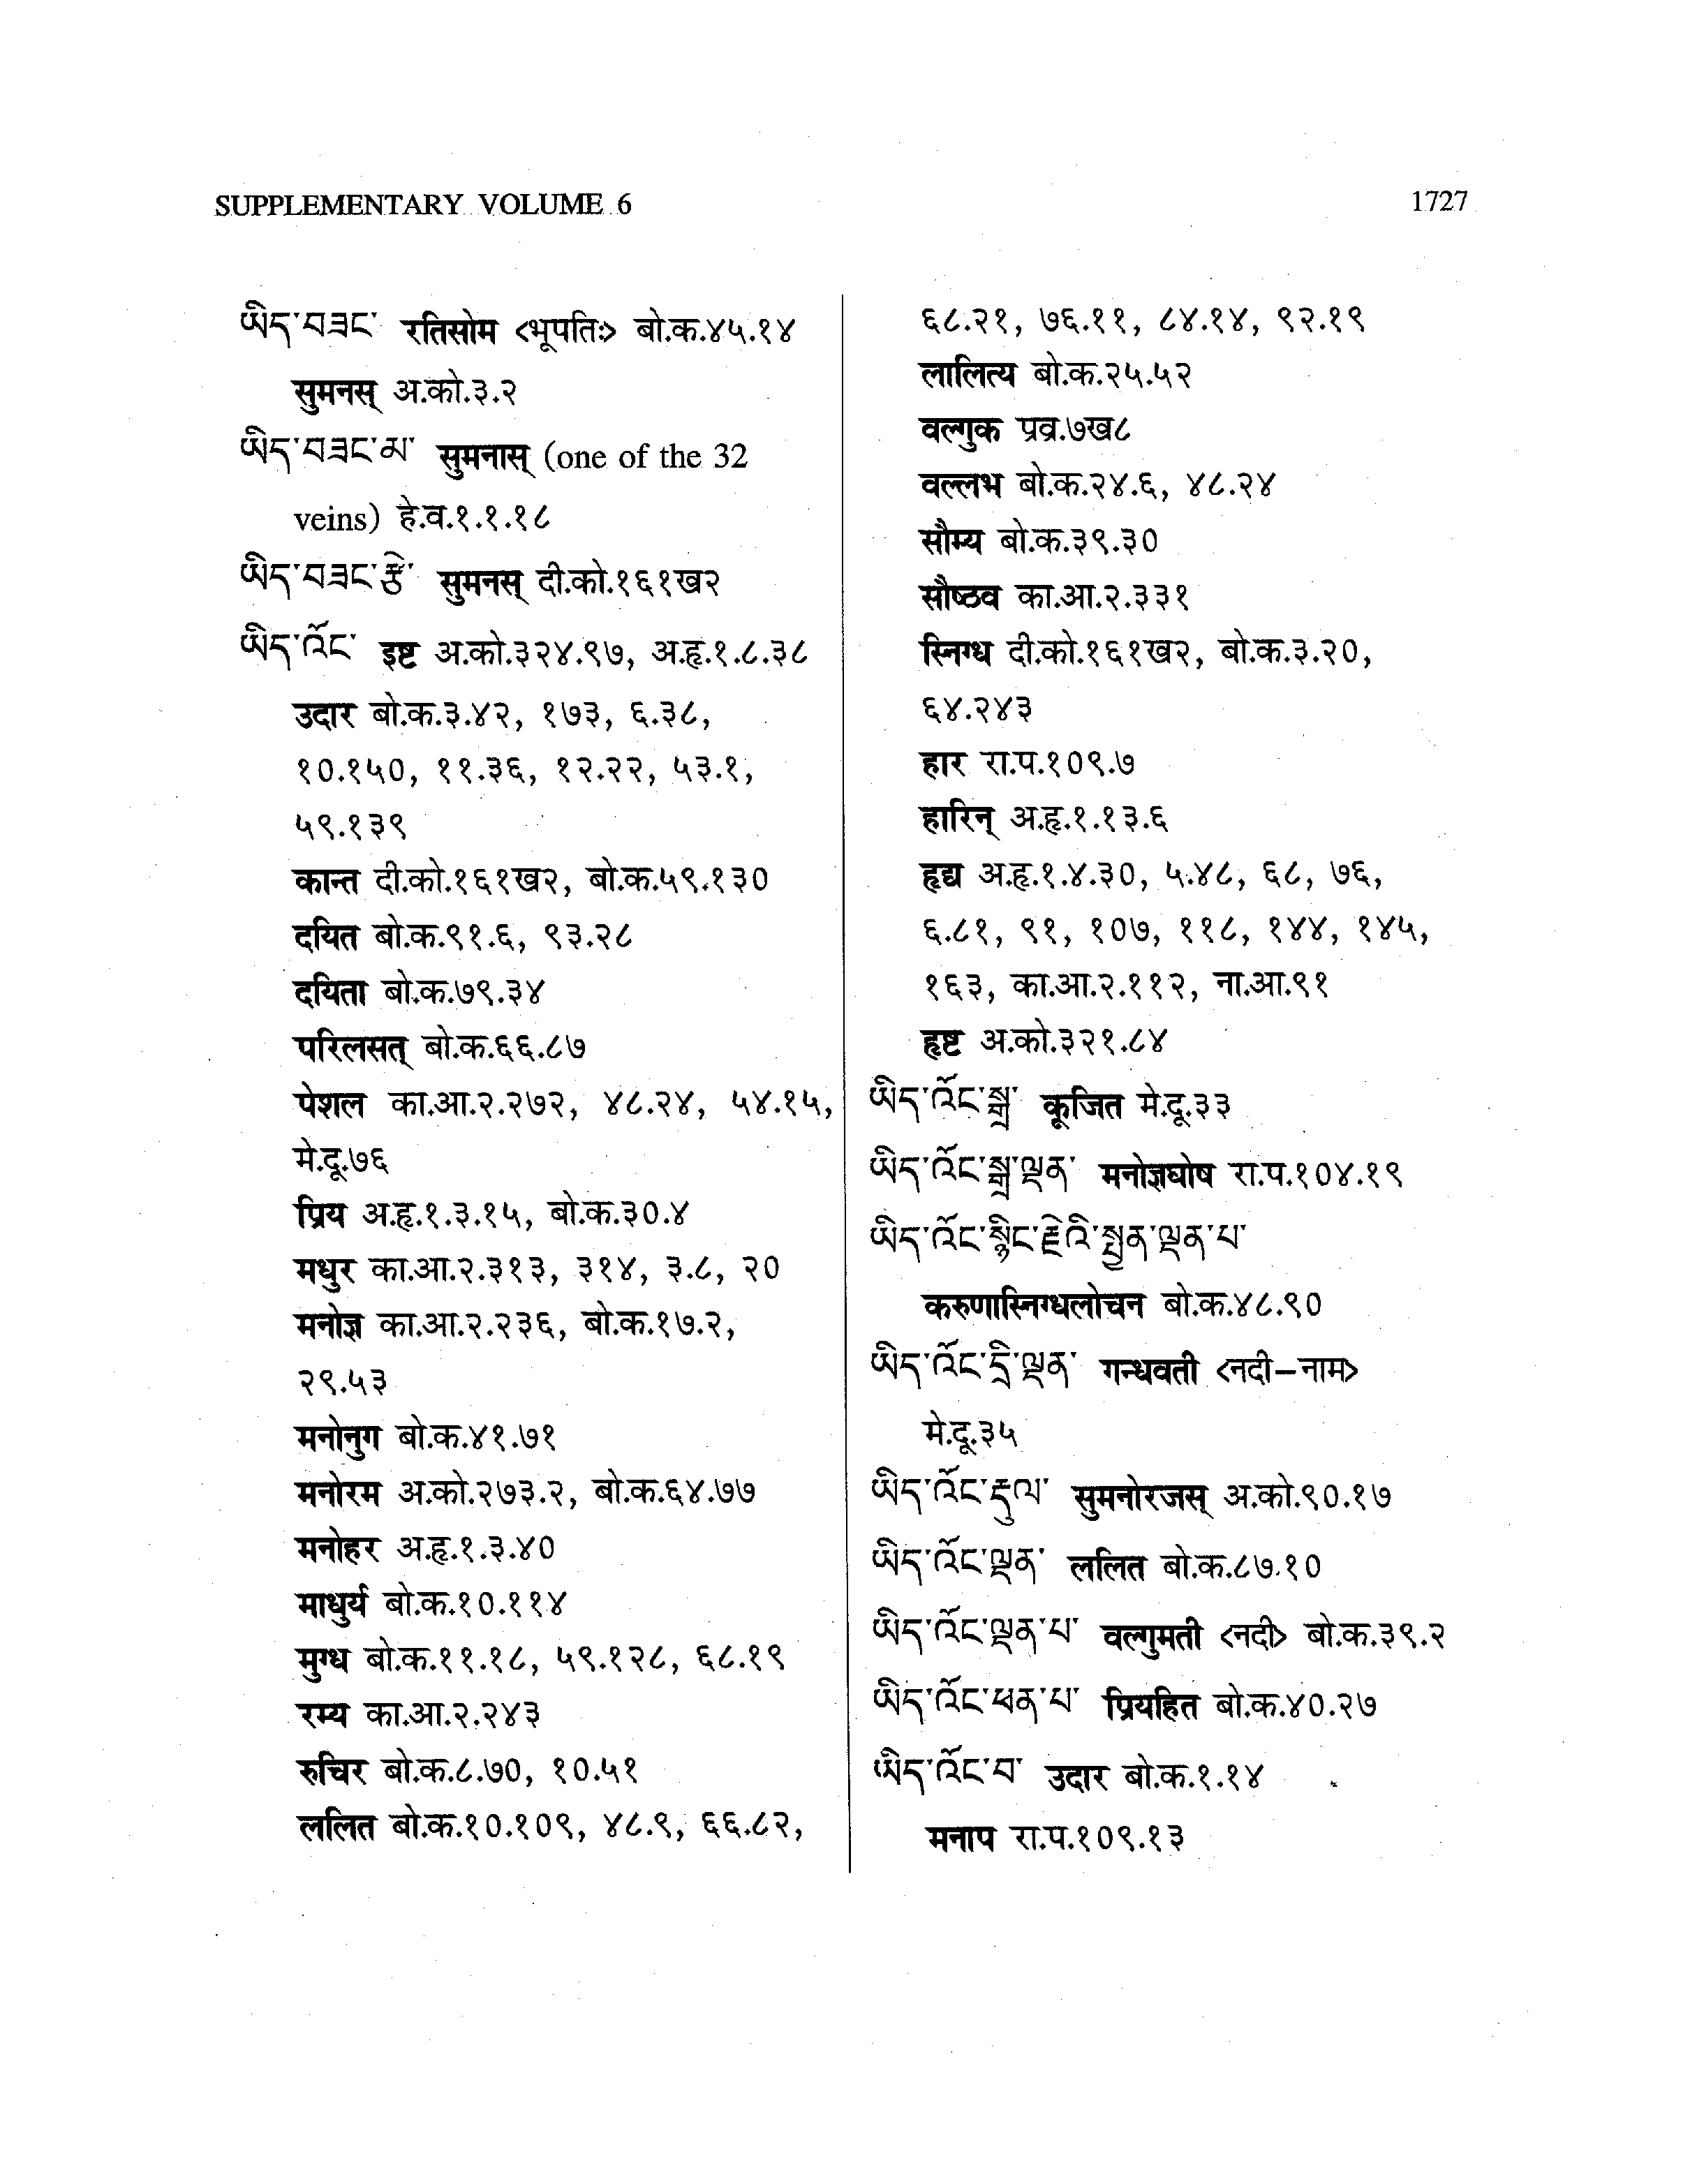 SUPPLEMENTARY VOLUME 6
1727
ཡིད་བཟང་ रतिसोम <भूपतिः> बो.क.४५.१४
सुमनस् अ.को.३.२
ཡིད་བཟང་མ་ सुमनास् (one of the 32
veins) हे.व.१.१.१८
ཡིད་བཟང་རྩེ་ सुमनस् दी.को.१६१ख२
ཡིད་འོང་ इष्ट अ.को.३२४.९७, अ.हृ.१.८.३८
उदार बो.क.३.४२, १७३, ६.३८,
१०.१५०, ११.३६, १२.२२, ५३.१,
५९.१३९
कान्त दी.को.१६१ख२, बो.क.५९.१३०
दयित बो.क.९१.६, ९३.२८
दयिता बो.क.७९.३४
परिलसत् बो.क.६६.८७
पेशल का.आ.२.२७२, ४८.२४, ५४.१५,
मे.दू.७६
प्रिय अ.हृ.१.३.१५, बो.क.३०.४
मधुर का.आ.२.३१३, ३१४, ३.८, २०
मनोज्ञ का.आ.२.२३६, बो.क.१७.२,
२९.५३
मनोनुग बो.क.४१.७१
मनोरम अ.को.२७३.२, बो.क.६४.७७
मनोहर अ.हृ.१.३.४०
माधुर्य बो.क.१०.११४
मुग्ध बो.क.११.१८, ५९.१२८, ६८.१९
रम्य का.आ.२.२४३
रुचिर बो.क.८.७०, १०.५१
ललित बो.क.१०.१०९, ४८.९, ६६.८२,
६८.२१, ७६.११, ८४.१४, ९२.१९
लालित्य बो.क.२५.५२
वल्गुक प्रव्र.७ख८
वल्लभ बो.क.२४.६, ४८.२४
सौम्य बो.क.३९.३०
सौष्ठव का.आ.२.३३१
स्निग्ध दी.को.१६१ख२, बो.क.३.२०,
६४.२४३
हार रा.प.१०९.७
हारिन् अ.हृ.१.१३.६
हृद्य अ.हृ.१.४.३०, ५.४८, ६८, ७६,
६.८१, ९१, १०७, ११८, १४४, १४५,
१६३, का.आ.२.११२, ना.आ.९१
हृष्ट अ.को.३२१.८४
ཡིད་འོང་སྒྲ་ कूजित मे.दू.३३
ཡིད་འོང་སྒྲ་ལྡན་ मनोज्ञघोष रा.प.१०४.१९
ཡིད་འོང་སྙིང་རྗེའི་སྤྱན་ལྡན་པ་
करुणास्निग्धलोचन बो.क.४८.९०
ཡིད་འོང་དྲི་ལྡན་ गन्धवती <नदी–नाम>
मे.दू.३५
ཡིད་འོང་རྡུལ་ सुमनोरजस् अ.को.९०.१७
ཡིད་འོང་ལྡན་ ललित बो.क.८७.१०
ཡིད་འོང་ལྡན་པ་ वल्गुमती <नदी> बो.क.३९.२
ཡིད་འོང་ཕན་པ་ प्रियहित बो.क.४०.२७
ཡིད་འོང་བ་ उदार बो.क.१.१४
मनाप रा.प.१०९.१३